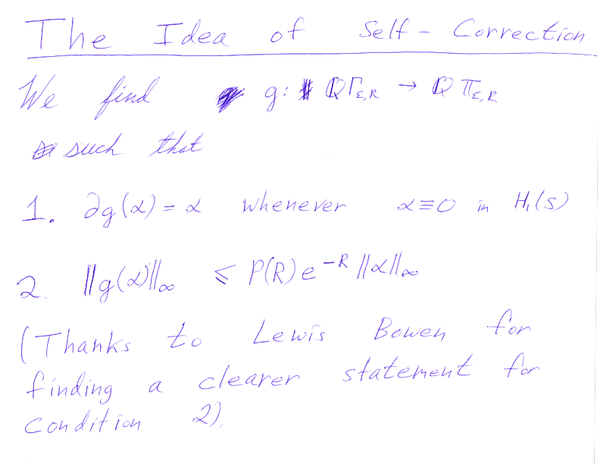 The Idea of Self-Correction
We find g: ℚΓ_{ε,R} → ℚΠ_{ε,R}
such that
1. ∂g(α) = α whenever α≡0 in H₁(S)
2. ‖g(α)‖_∞ ≤ P(R)e^{-R}‖α‖_∞
(Thanks to Lewis Bowen for
finding a clearer statement for
condition 2).